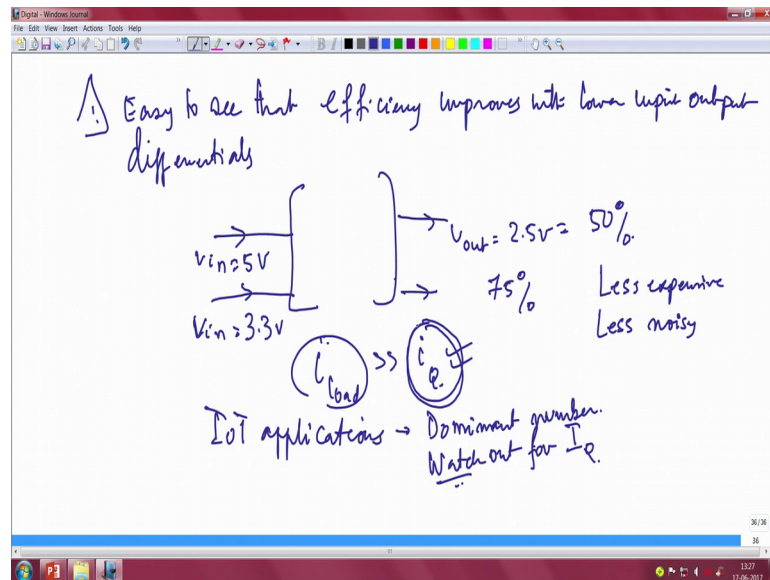 Digital - Windows Journal
File Edit View Insert Actions Tools Help
Easy to see that efficiency improves with lower input output
differentials
Vin=5V
Vout = 2.5V = 50%
Vin=3.3V
75%
Less expensive
Less noisy
iLoad >> iQ
IoT applications → Dominant number.
Watch out for IQ.
36/36
36
13:27
17-06-2017